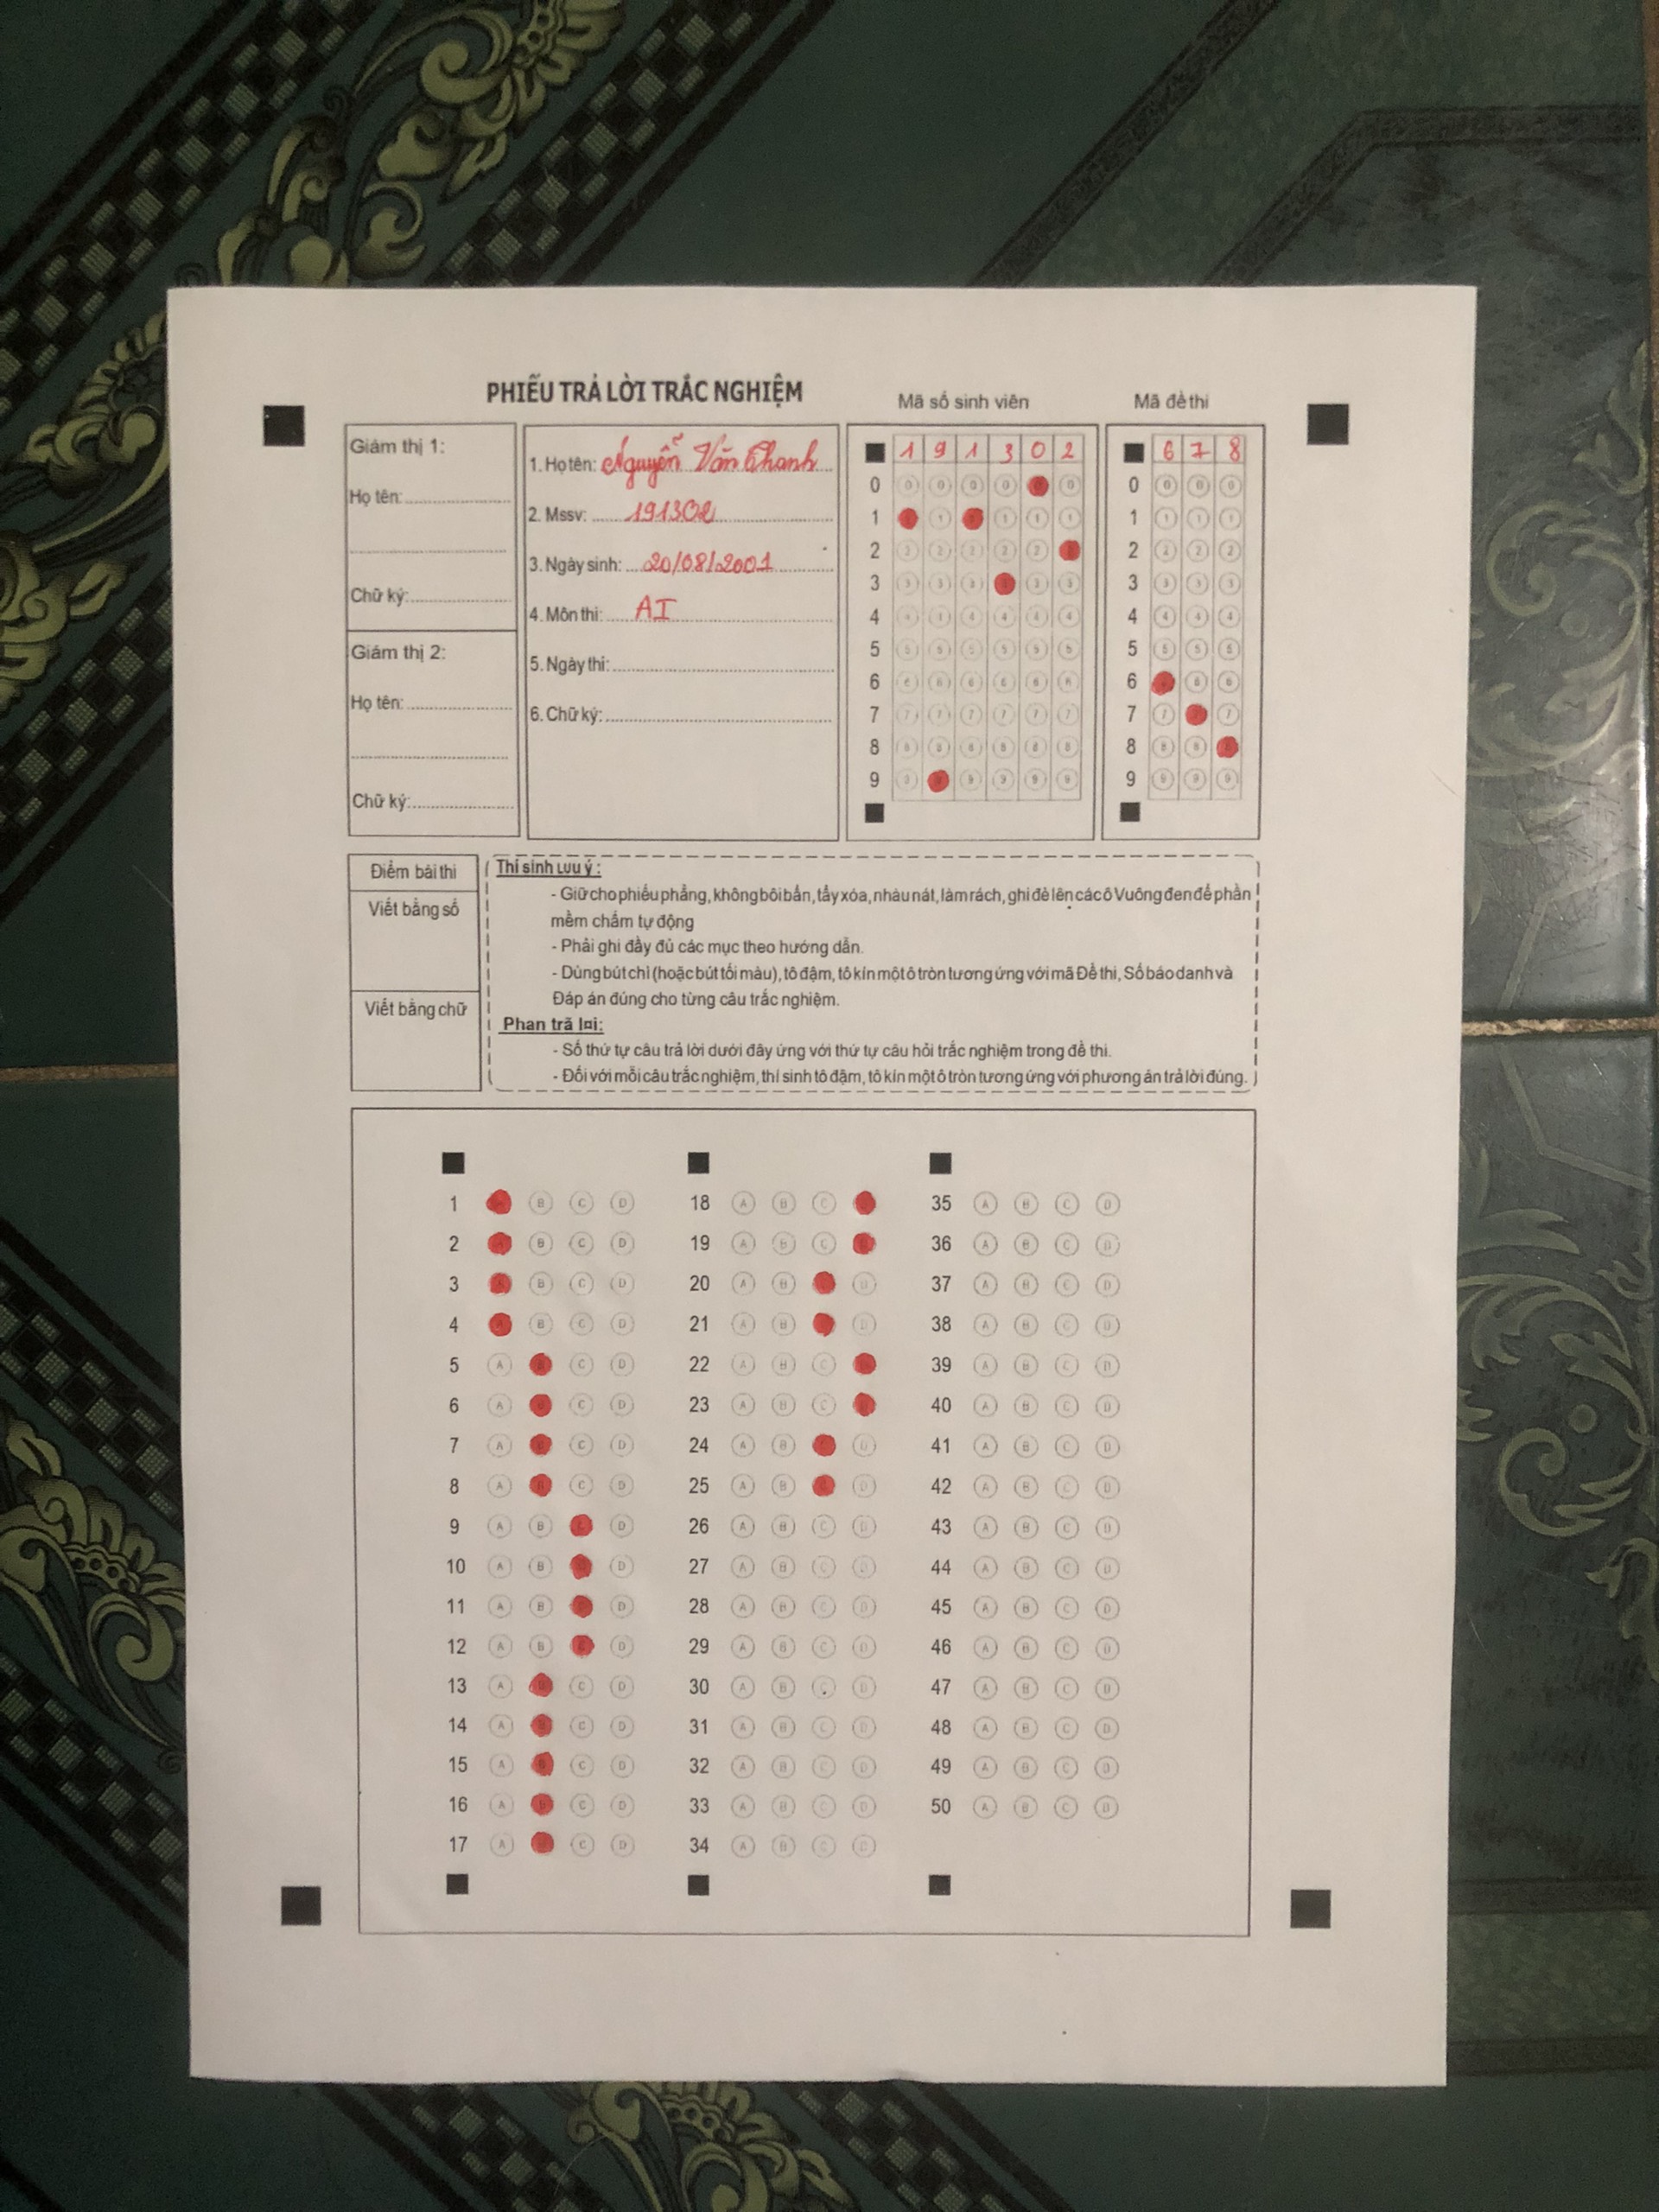 PHIẾU TRẢ LỜI TRẮC NGHIỆM
Mã số sinh viên
Mã đề thi
Giám thị 1:
Họ tên:
Chữ ký:
Giám thị 2:
Họ tên:
Chữ ký:
1. Họ tên: Nguyễn Văn Thanh
2. Mssv: 191302
3. Ngày sinh: 20/08/2001
4. Môn thi: AI
5. Ngày thi:
6. Chữ ký:
1 9 1 3 0 2
0 0 0 0 0 0
1 1 1 1 1
2 2 2 2 2 2
3 3 3 3 3 3
4 4 4 4 4 4 4
5 5 5 5 5 5 5
6 6 6 6 6 6 6
7 7 7 7 7 7 7
8 8 8 8 8 8 8
9 9 9 9 9 9
6 7 8
0 0 0 0
1 1 1 1
2 2 2 2
3 3 3 3
4 4 4 4
5 5 5 5
6 6 6
7 7 7
8 8 8
9 9 9 9
Điểm bài thi
Viết bằng số
Viết bằng chữ
Thí sinh Lưu ý :
- Giữ cho phiếu phẳng, không bôi bẩn, tẩy xóa, nhàu nát, làm rách, ghi đè lên các ô Vuông đen để phần
mềm chấm tự động
- Phải ghi đầy đủ các mục theo hướng dẫn.
- Dùng bút chì (hoặc bút tối màu), tô đậm, tô kín một ô tròn tương ứng với mã Đề thi, Số báo danh và
Đáp án đúng cho từng câu trắc nghiệm.
Phan trã lại:
- Số thứ tự câu trả lời dưới đây ứng với thứ tự câu hỏi trắc nghiệm trong đề thi.
- Đối với mỗi câu trắc nghiệm, thí sinh tô đậm, tô kín một ô tròn tương ứng với phương án trả lời đúng.
1 B C D
2 B C D
3 B C D
4 B C D
5 A C D
6 A C D
7 A C D
8 A C D
9 A B D
10 A B D
11 A B D
12 A B D
13 A C D
14 A C D
15 A C D
16 A C D
17 A C D
18 A B C
19 A B C
20 A B D
21 A B D
22 A B C
23 A B C
24 A B D
25 A B D
26 A B C D
27 A B C D
28 A B C D
29 A B C D
30 A B C D
31 A B C D
32 A B C D
33 A B C D
34 A B C D
35 A B C D
36 A B C D
37 A B C D
38 A B C D
39 A B C D
40 A B C D
41 A B C D
42 A B C D
43 A B C D
44 A B C D
45 A B C D
46 A B C D
47 A B C D
48 A B C D
49 A B C D
50 A B C D